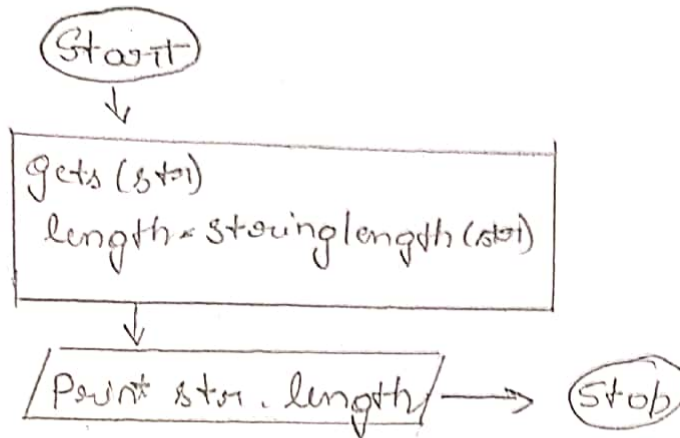 Start
gets(str)
length = stringlength(str)
Print str. length
Stop